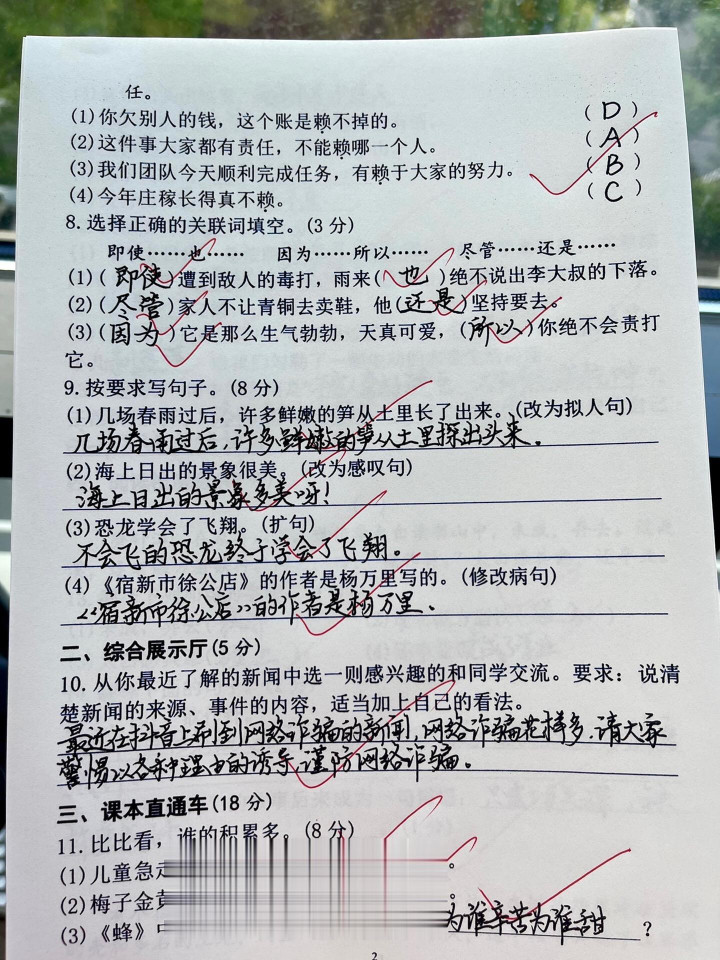 任。
(1)你欠别人的钱，这个账是赖不掉的。 ( D )
(2)这件事大家都有责任，不能赖哪一个人。 ( A )
(3)我们团队今天顺利完成任务，有赖于大家的努力。 ( B )
(4)今年庄稼长得真不赖。 ( C )
8.选择正确的关联词填空。(3分)
即使……也…… 因为……所以…… 尽管……还是……
(1)( 即使 )遭到敌人的毒打，雨来( 也 )绝不说出李大叔的下落。
(2)( 尽管 )家人不让青铜去卖鞋，他(还是)坚持要去。
(3)( 因为 )它是那么生气勃勃，天真可爱，(所以)你绝不会责打
它。
9.按要求写句子。(8分)
(1)几场春雨过后，许多鲜嫩的笋从土里长了出来。(改为拟人句)
几场春雨过后，许多鲜嫩的笋从土里探出头来。
(2)海上日出的景象很美。(改为感叹句)
海上日出的景象多美呀！
(3)恐龙学会了飞翔。(扩句)
不会飞的恐龙终于学会了飞翔。
(4)《宿新市徐公店》的作者是杨万里写的。(修改病句)
《宿新市徐公店》的作者是杨万里。
二、综合展示厅(5分)
10.从你最近了解的新闻中选一则感兴趣的和同学交流。要求：说清
楚新闻的来源、事件的内容，适当加上自己的看法。
最近在抖音上刷到网络诈骗的新闻，网络诈骗花样多，请大家
警惕以各种理由的诱导，谨防网络诈骗。
三、课本直通车(18分)
11.比比看，谁的积累多。(8分)
(1)儿童急走 。
(2)梅子金黄 。
(3)《蜂》 为谁辛苦为谁甜 ？
2